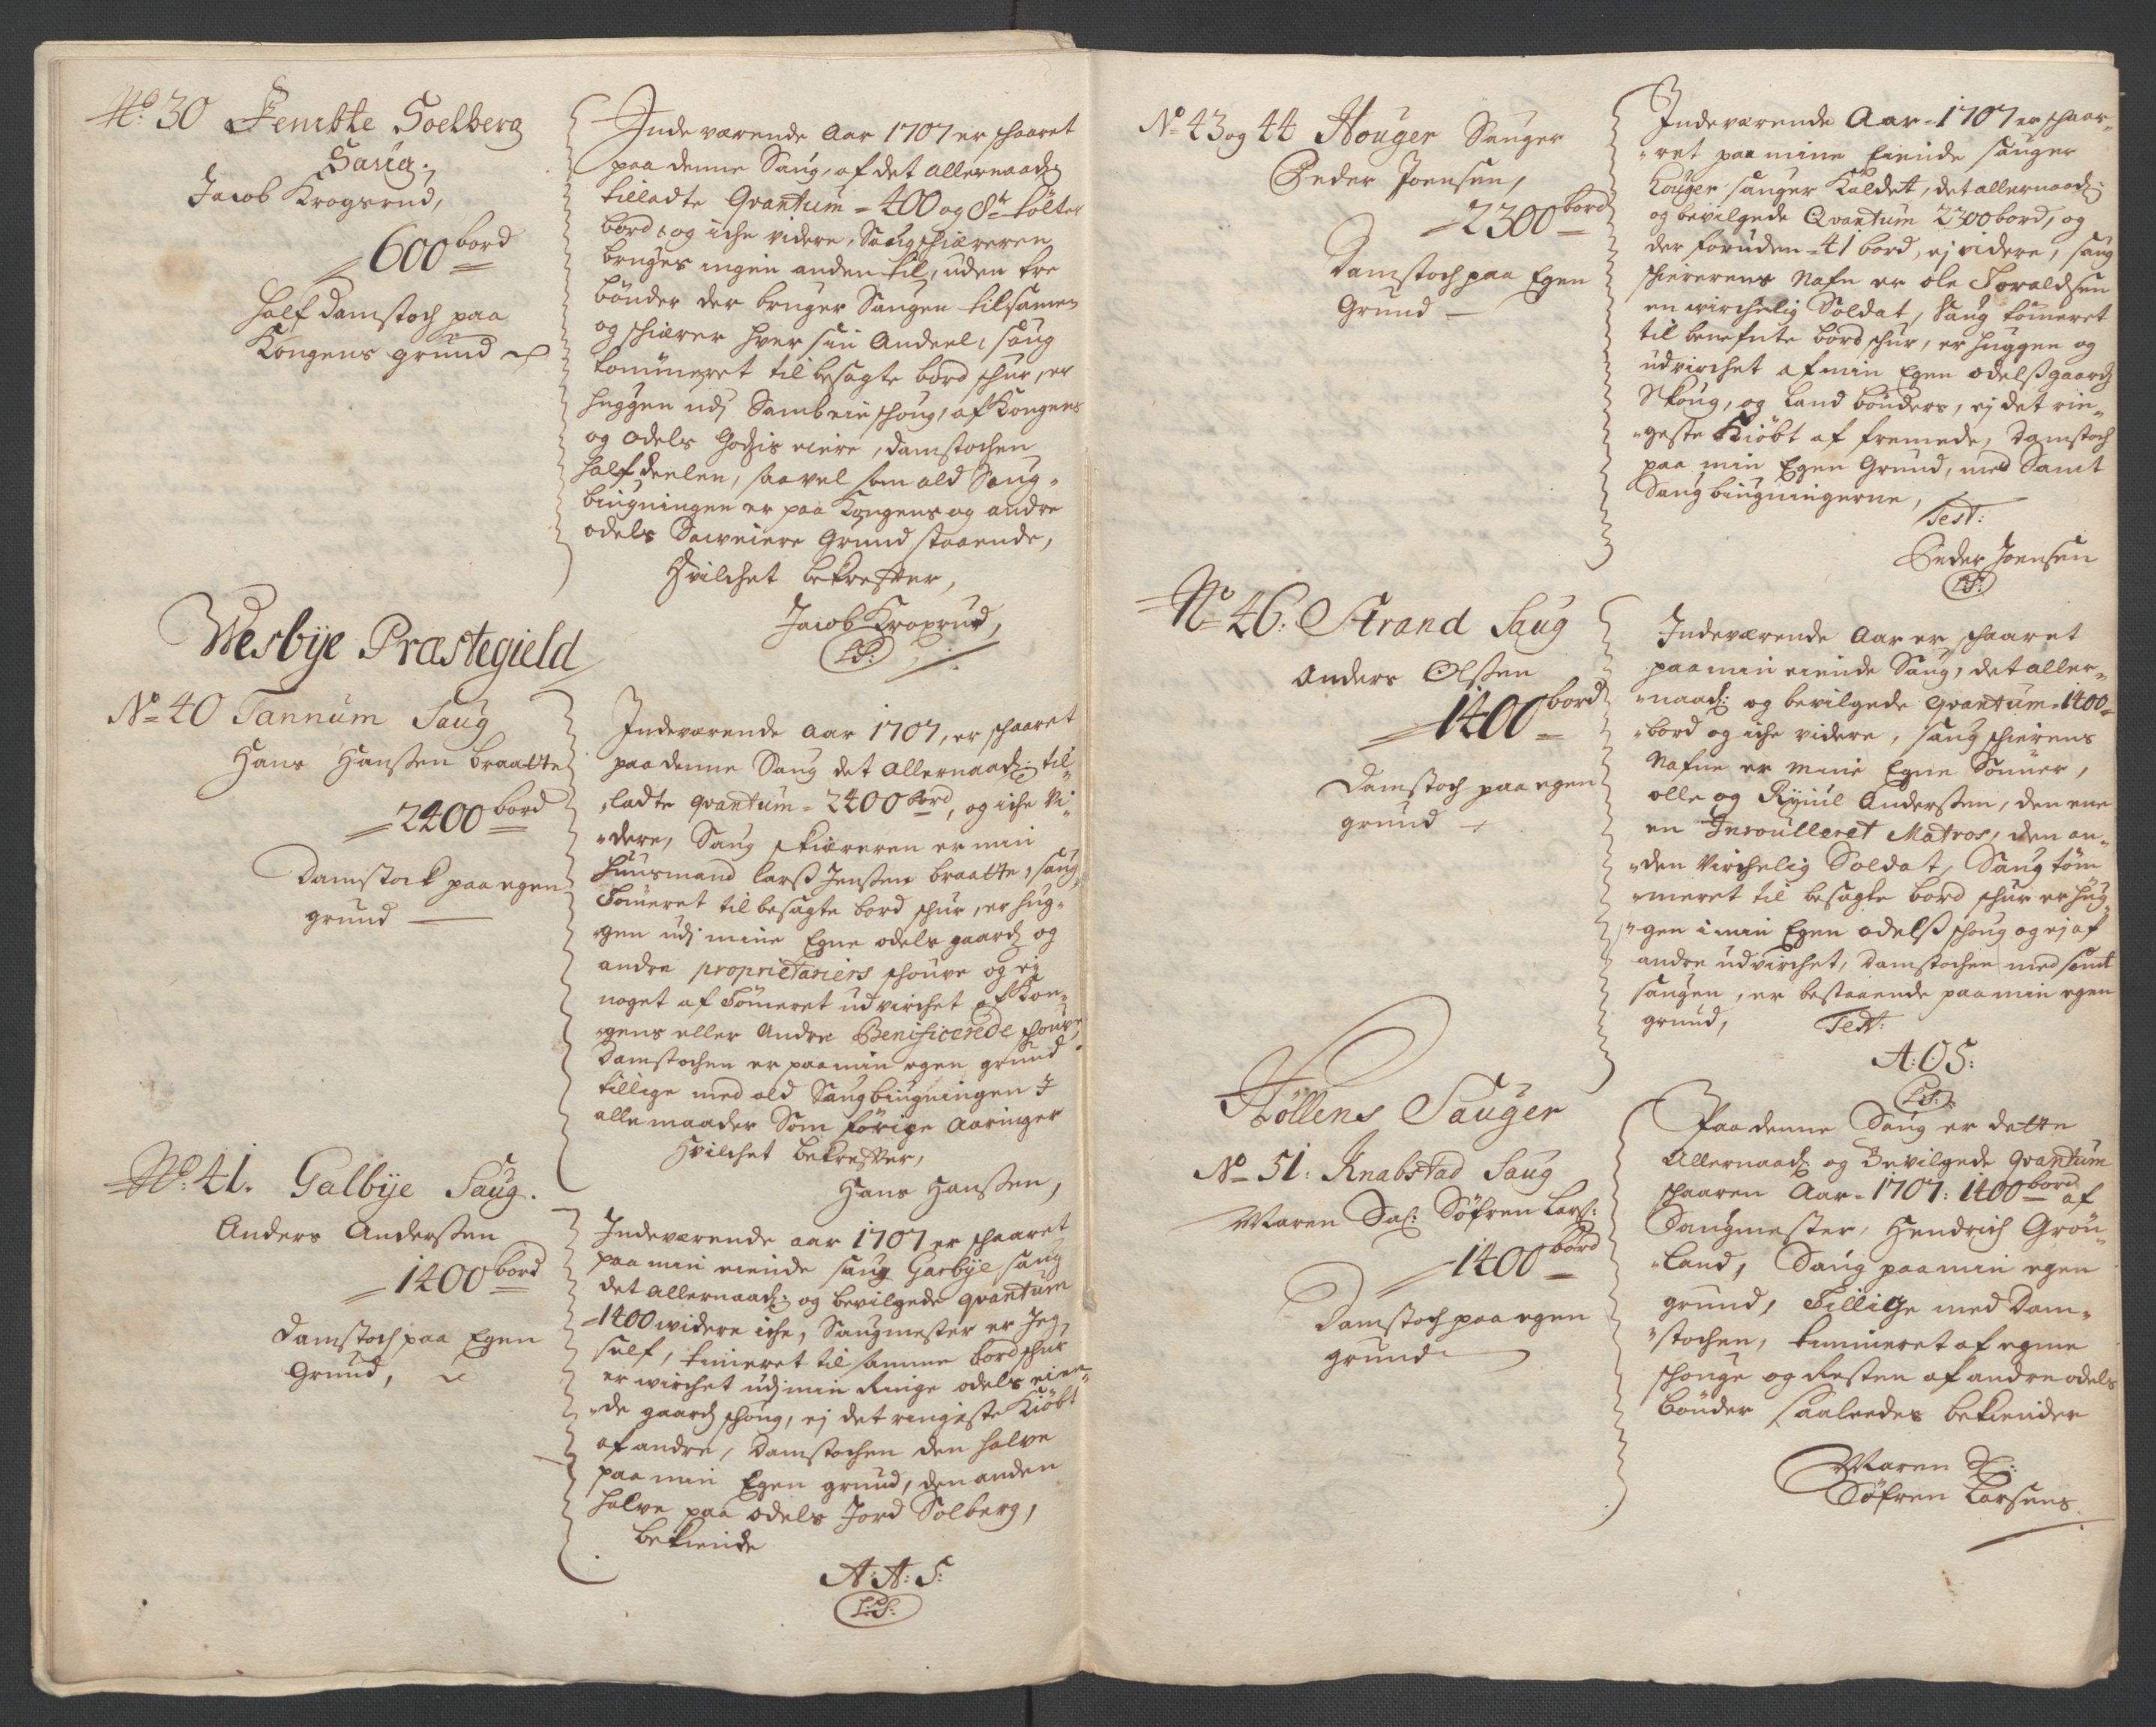 No: 30 Femtte Soelberg
Saug.,
Jacob Krogsrud,
600 bord
Half damstoch paa
Kongens grund
Inde værende Aar 1707 er schaaret
paa denne Saug, af det allernaad:
tilladte Qvantum = 400 og 8te tölter
bord, og iche videre, Saugschiæreren
bruges ingen anden til, uden tre
bönder der bruger Saugen tilsamen
og schiærer hver sin Andeel, saug
tommeret til besagte bord schur, er
huggen udj Sambeie schoug, af Kongens
og odels Godzis eiere, damstochen
halfdeelen, saavel som ald Saug-
bingningen er paa Kongens og andre
odels Saveiere Grund staaende,
Hvilchet bekrefter,
Jacob Kroxrud,
L:S:
Wesbÿe Præstegield
No 40 Tannum Saug
Hans Hanssen braatte
2400 bord
Damstock paa egen
grund
Indeværende Aar 1707, er schaaret
paa denne Saug det allernaad: til-
ladte qvantum = 2400 bord, og iche vi-
dere, Saug skiæreren er min
Huusmand Larss Jenssen braatte, saug
Tömeret til besagte bord schur, er hug-
gen udj mine Egne odels gaard og
andre proprietariers schouve og ej
noget af Tömeret udvirchet af Kon-
gens eller Andre Benificerede schouve,
Damstochen er paa min egen grund
tillige med ald Saugbingningen I
alle maader Som forige Aaringer
Hvilchet bekrefter,
Hans Hanssen,
No: 41. Galbÿe Saug.
Anders Anderssen
1400 bord
Damstoch paa Egen
Grund,
Indeværende aar 1707 er schaaret
paa min eiende saug Garbÿe saug
det allernaad: og bevilgede qvantum
1400 widere iche, Saugmester er Jeg
self, timeret til samme bord schur
er wirchet udj min Ringe odels eien-
de gaard schoug, ej det ringeste Kiöbt
af andre, Damstochen den halve
paa min Egen grund, den anden
halve paa odels Jord Solberg,
bekiende
A: A: S:
L:S:
No 43 og 44 Houger Sauger
Peder Joensen,
2300 bord
Damstoch paa Egen
Grund
Indeværende Aar = 1707 er schaar-
ret paa mine Eiende sauger
Houger sauger Kaldet, det allernaad:
og bevilgede Qvantum 2300 bord, og
der foruden = 41 bord, ej videre, saug
schiererens Nafn er ole Toraldsen
en wirchelig Soldat, Saug tömeret
til benefnte bord schur, er huggen og
udvirchet af min Egen odelss gaards
Skoug, og Land bönders, ej det rin-
geste Kiöbt af fremede, Damstoch
paa min Egen Grund, med Samt
Saug bingningerne,
Test:
Peder Joensen
L:S:
No 46: Strand Saug
Anders Olssen
1400 bord
Damstoch paa egen
grund
Indeværende Aar er schaaret
paa min eiende Saug, det aller-
naad: og bevilgede qvantum = 1400
bord og iche videre, saug schierens
Nafne er mine Egne Sönner,
olle og Anderssen, den ene
en Inroulleret Matros, den an-
den Virchelig Soldat, Saug töm
meret til besagte bord schur er hug-
gen i min Egen odelss schoug og ej af
andre udvirchet, Damstochen med samt
saugen, er bestaaende paa min egen
grund, Test:
A: O S:
L:S:
Höllens Sauger
No 51: Knabstad Saug
Maren Sal: Söfren Lars:
1400 bord
Damstoch paa egen
grund
Paa denne Saug er dette
Allernaad: og Bevilgede qvantum
schaaren Aar = 1707: 1400 bord af
Saugmester, Hendrich Grön-
land, Saug paa min egen
grund, Tillige med Dam-
stochen, timmeret af egene
schouge og Resten af andre odels
bönder saaledes bekiender
Maren S:
Söfren Larsens